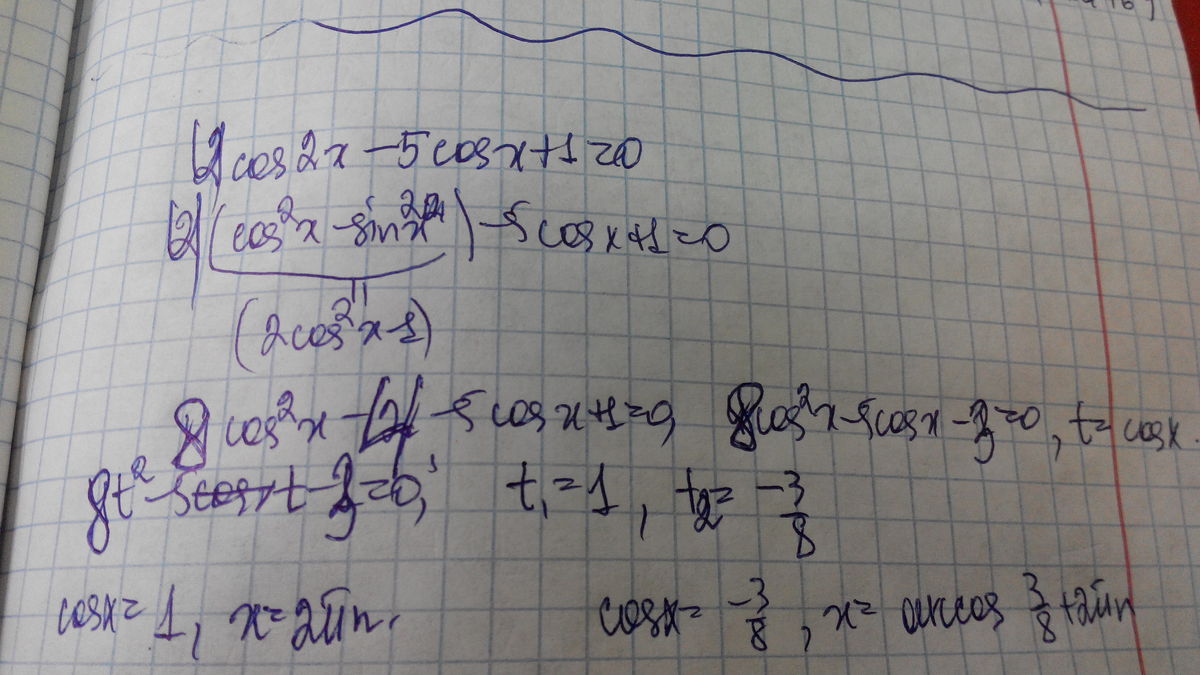 4cos2x-5cosx+1=0
4(cos²x-sin²x)-5cosx+1=0
(2cos²x-1)
8cos²x-4-5cosx+1=0, 8cos²x-5cosx-3=0, t=cosx.
8t²-5t-3=0, t₁=1, t₂=-3/8
cosx=1, x=2πn.
cosx=-3/8, x=arccos 3/8+2πn